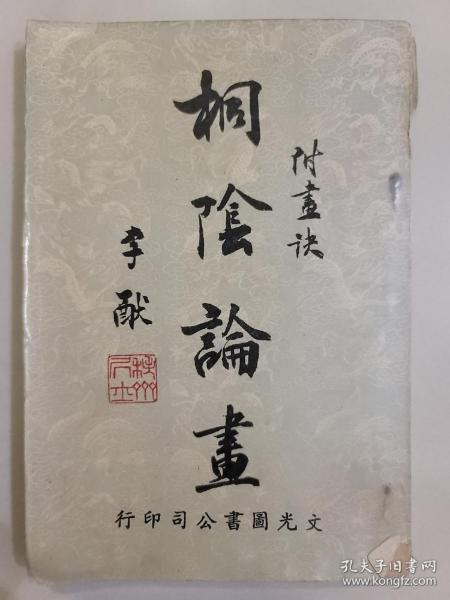 附畫訣
桐陰論畫
李猷
文光圖書公司印行
孔夫子旧书网
www.kongfz.com